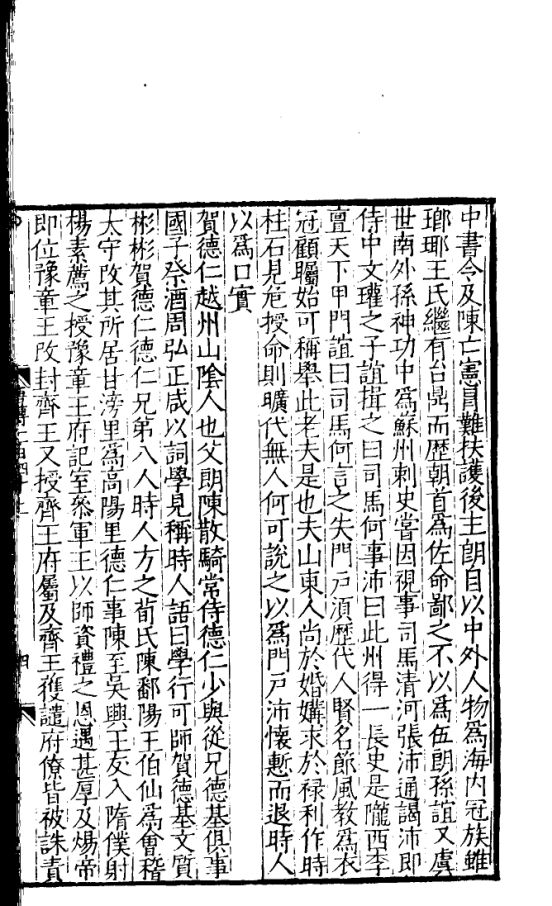 中書令及陳亡憲冒難扶護後主朗自以中外人物爲海内冠族雖
瑯琊王氏繼有台鼎而歷朝首爲佐命鄙之不以爲伍朗孫誼又虞
世南外孫神功中爲蘇州刺史嘗因視事司馬清河張沛通謁沛即
侍中文瓘之子誼揖之曰司馬何事沛曰此州得一長史是隴西李
亶天下甲門誼曰司馬何言之失門戸須歷代人賢名節風教爲衣
冠顧矚始可稱舉此老夫是也夫山東人尚於婚媾求於禄利作時
柱石見危授命則曠代無人何可說之以爲門戸沛懷慙而退時人
以爲口實
賀德仁越州山陰人也父朗陳散騎常侍德仁少與從兄德基俱事
國子祭酒周弘正咸以詞學見稱時人語曰學行可師賀德基文質
彬彬賀德仁德仁兄弟八人時人方之荀氏陳鄱陽王伯仙爲會稽
太守改其所居甘滂里爲高陽里德仁事陳至吳興王友入隋僕射
楊素薦之授豫章王府記室叅軍王以師資禮之恩遇甚厚及煬帝
即位豫章王改封齊王又授齊王府屬及齊王獲譴府僚皆被誅責
四